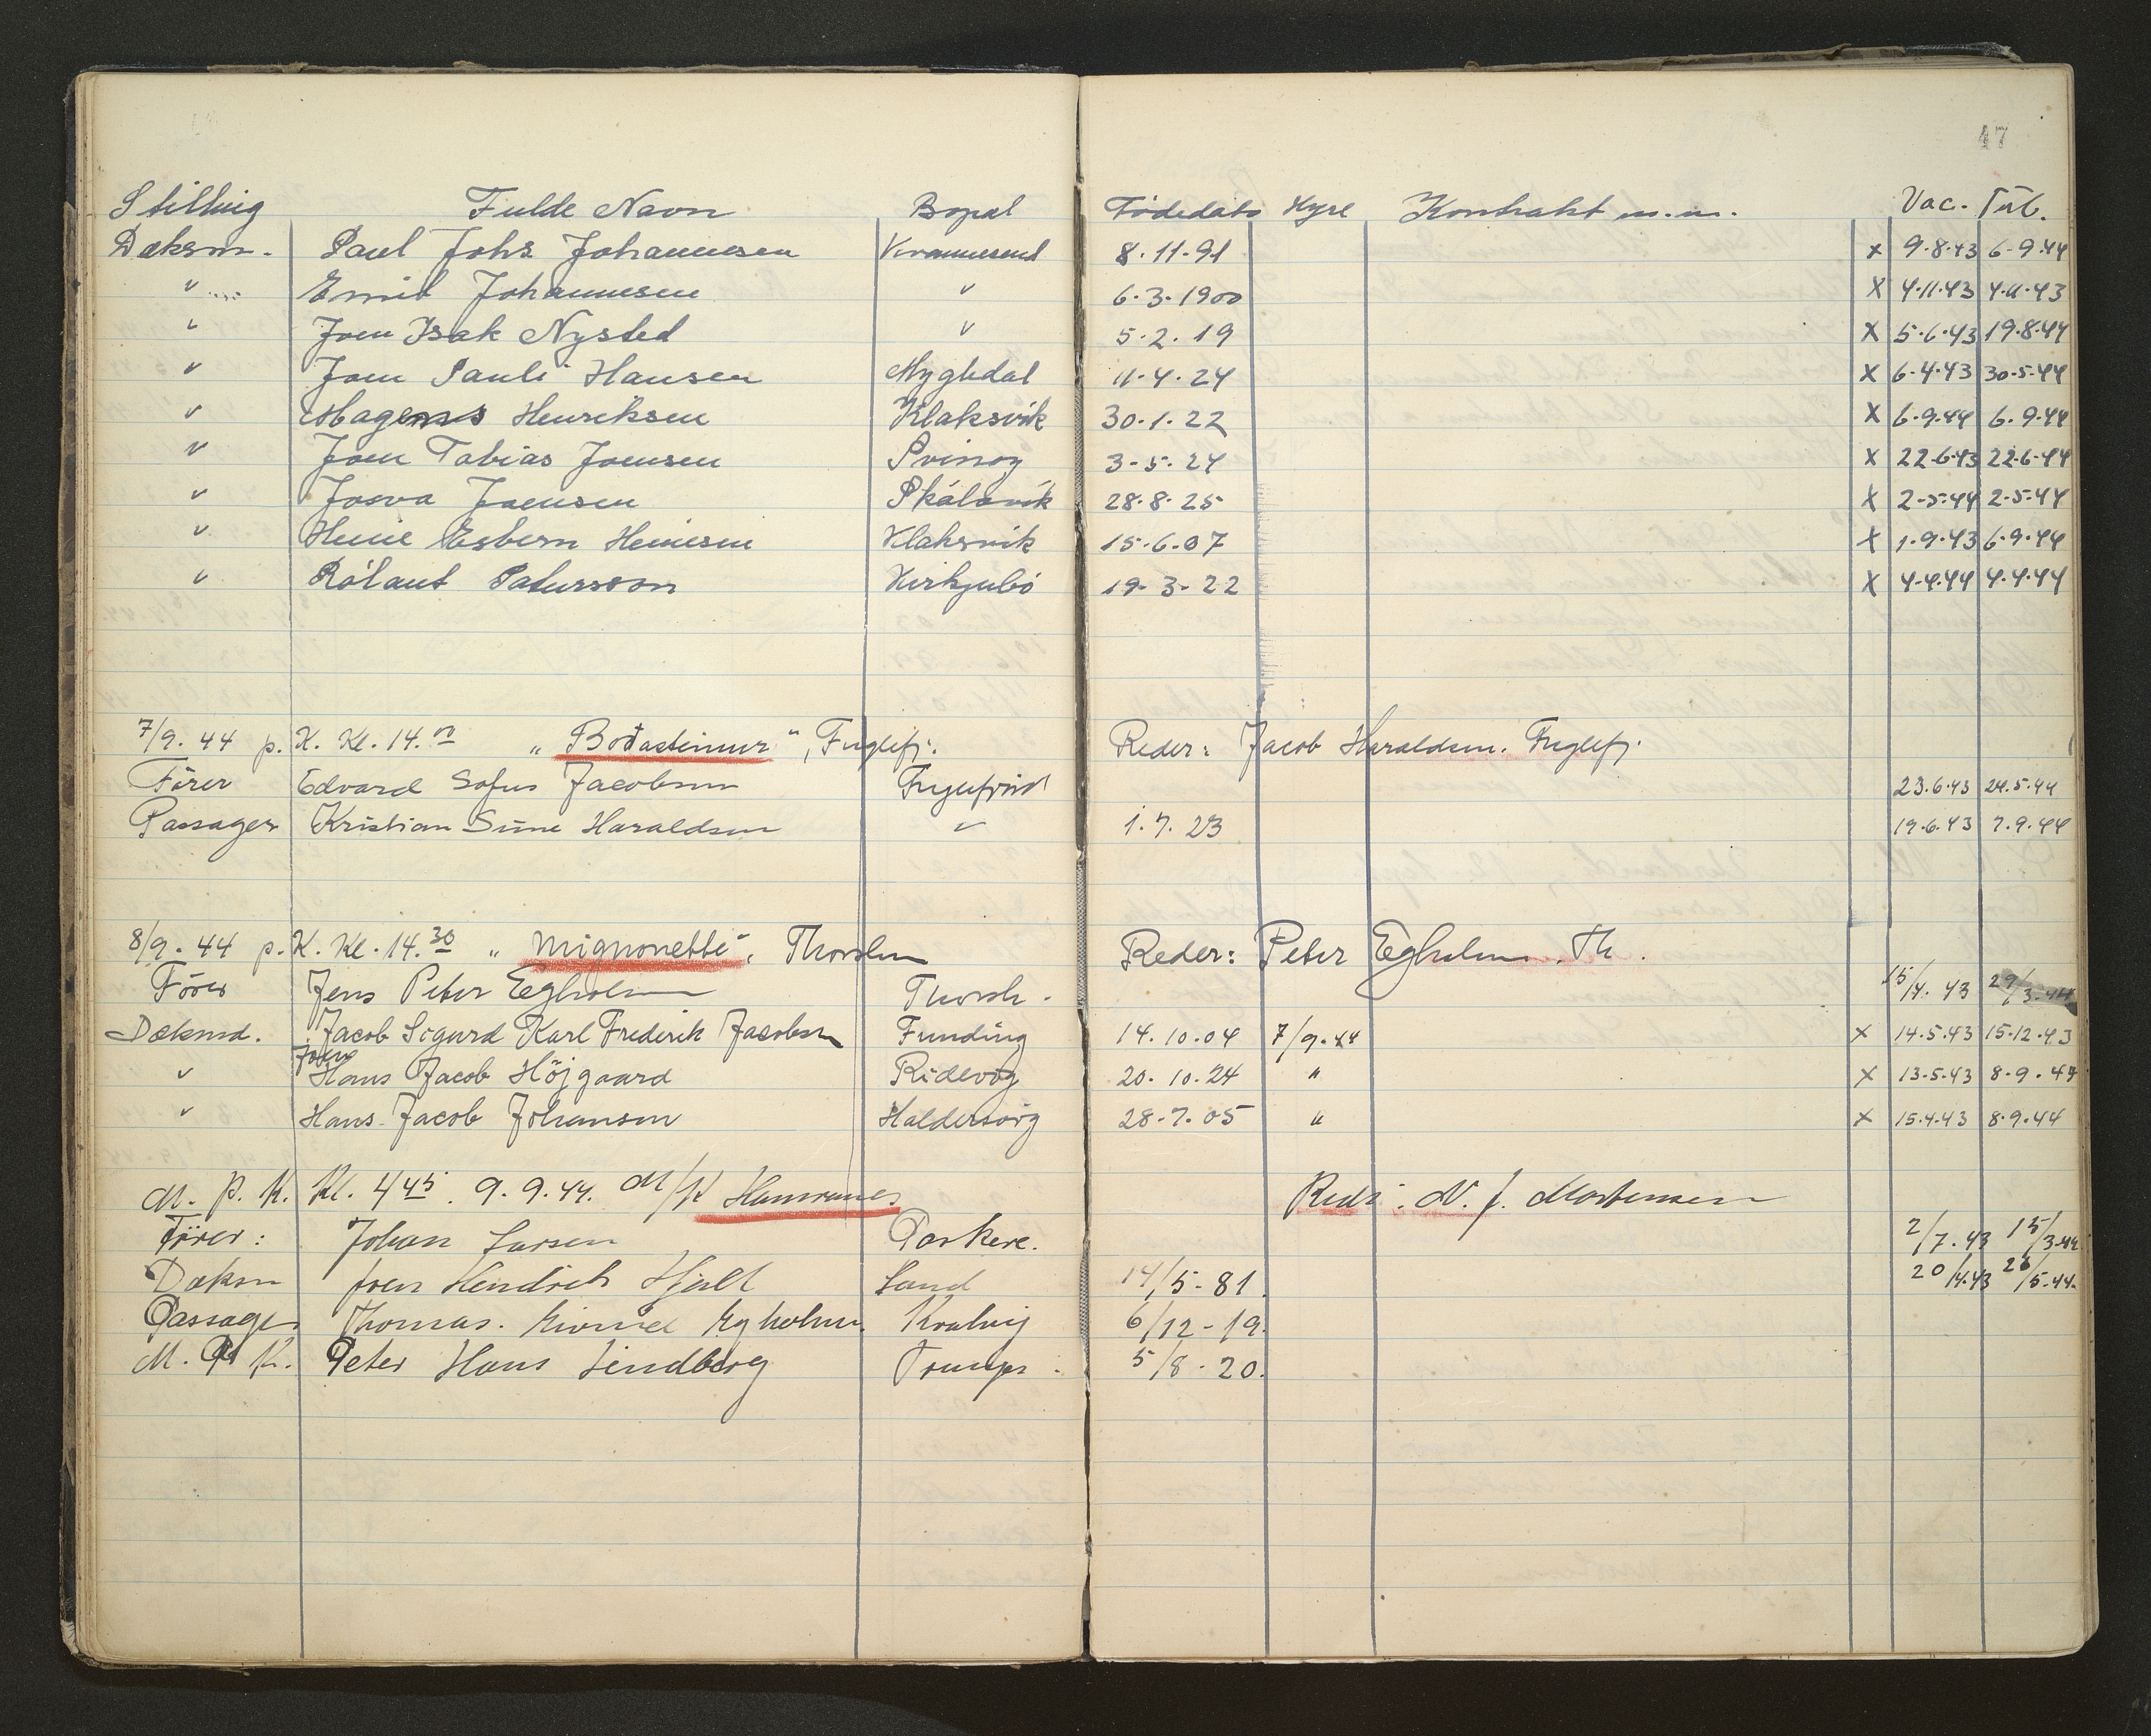 47
Stilling Fulde Navn Bopæl Födedato Hyre Kontrakt m.m. Vac. Tub.
Dæksm. Paul Johs Johannesen Kvannesund 8.11.91 x 9.8.43 6.9.44
" Emil Johannesen " 6.3.1900 x 4.11.43 4.11.43
" Joen Isak Nysted " 5.2.19 x 5.6.43 19.8.44
" Joen Pauli Hansen Mygledal 11.4.24 x 6.4.43 30.5.44
" Magnus Henriksen Klaksvik 30.1.22 x 6.9.44 6.9.44
" Joen Tobias Joensen Svinoy 3.5.24 x 22.6.43 22.6.44
" Josva Joensen Skálavik 28.8.25 x 2.5.44 2.5.44
" Heine Esbern Heinesen Klaksvik 15.6.07 x 1.9.43 6.9.44
" Rólant Patursson Kirkjubö 19.3.22 x 4.4.44 4.4.44
7/9.44 p. K. Kl. 14. „Bodasteinur", Fuglefj. Reder: Jacob Haraldsen. Fuglefj.
Förer Edvard Sofus Jacobsen Fuglefjord 23.6.43 24.5.44
Passager Kristian Sune Haraldsen " 1.7.23 19.6.43 7.9.44
8/9.44 p. K. Kl. 14.30 „Mignonette", Thorshvn Reder: Peter Egholm. Th.
Förer Jens Peter Egholm Thorsh. 15/4.43 29/3.44
Dæksmd. Jacob Sigurd Karl Frederik Jacobsen Funding 14.10.04 7/9.44 x 14.5.43 15.12.43
" Joen Hans Jacob Höjgaard Ridevög 20.10.24 " x 13.5.43 8.9.44
" Hans Jacob Johansen Haldersvig 28.7.05 " x 15.4.43 8.9.44
M. P. K. Kl. 445. 9.9.44. M/K Hamranes Reder: N. J. Mortensen
Förer: Johan Larsen Porkere. 2/7.43 15/3.44
Dæksm Joen Hendrik Hjalt Sand 14/5-81. 20/4.43 26/5.44.
Passager Thomas. Egholm. Kvalvig 6/12-19.
M. P. K. Peter Hans Lindberg 5/8.20.